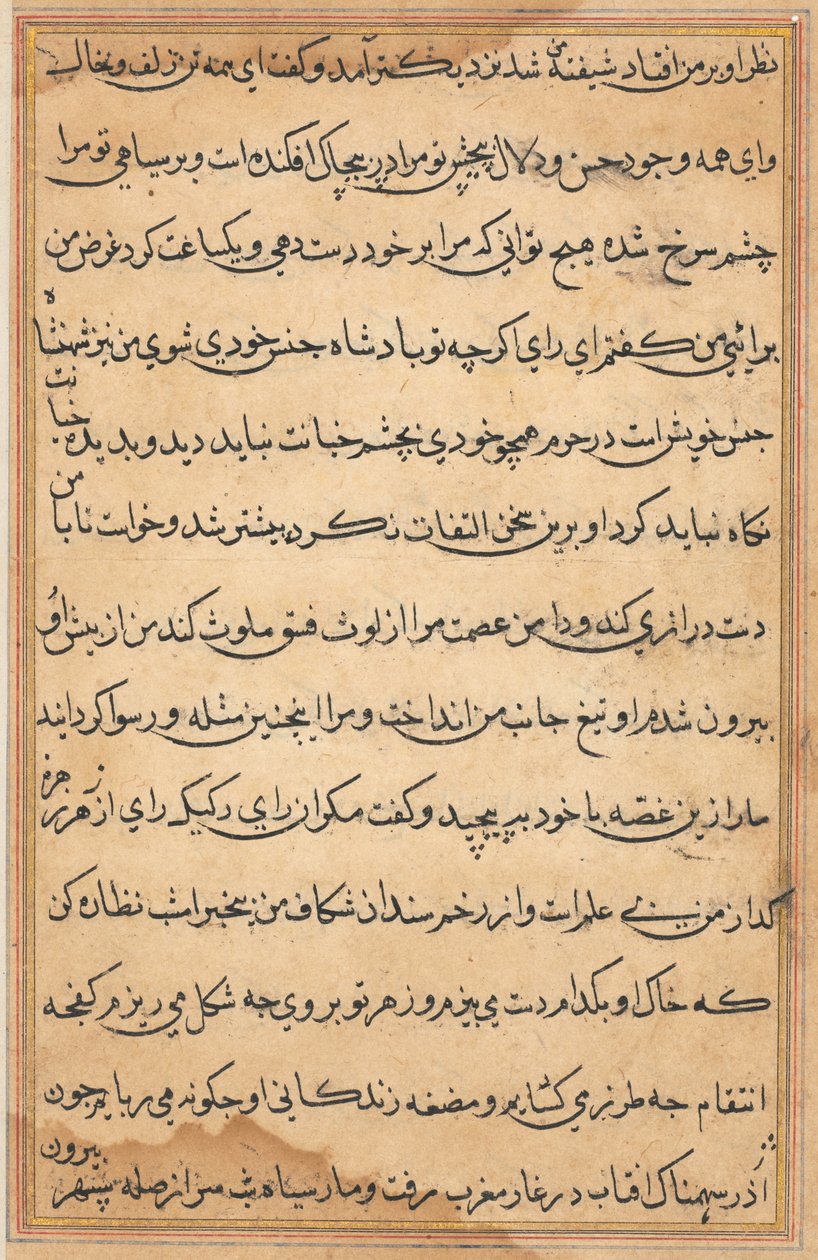 نظر او بر من افتاد شیفته من شد نزدیکتر آمد و کفت ای همه تن زلف و خال
وای همه وجود حسن و دلال پیچش تو مرا در پیچاک افکنده است و بر سیاهی تو مرا
چشم سرخ شده هیچ توانی که مرا بر خود دست دهی و یکساعت کرد غرض من
برائی من کفتم ای رای اکرچه تو بادشاه جنس خودی شوی من نیز شهنشاه
جنس خویش است در حرم همچو خودی بچشم خیانت نباید دید و بدیده خیانت
نکاه نباید کرد او برین سخن التفات نکرد پیشتر شد و خواست تا با من
دست درازی کند و دامن عصمت مرا از لوث فسق ملوث کند من از پیش او
بیرون شدم او تیغ جانب من انداخت و مرا اینچنین مثله و رسوا کردانید
مار ازین غصّه با خود بپیچید و کفت مکر آن رای رکیک رای از زهر زهره
کداز من بی علم است و از زخم سندان شکاف من بیخبر امشب نظاره کن
که خاک او بکدام دست می بیزم و زهر تو بروی چه شکل می ریزم کفچه
انتقام چه طرز می کشایم و مضغه زندکانی او چکونه می ربایم چون
آذر سهمناک افتاب در غار مغرب رفت و مار سیاه شب سر از صله سپهر بیرون